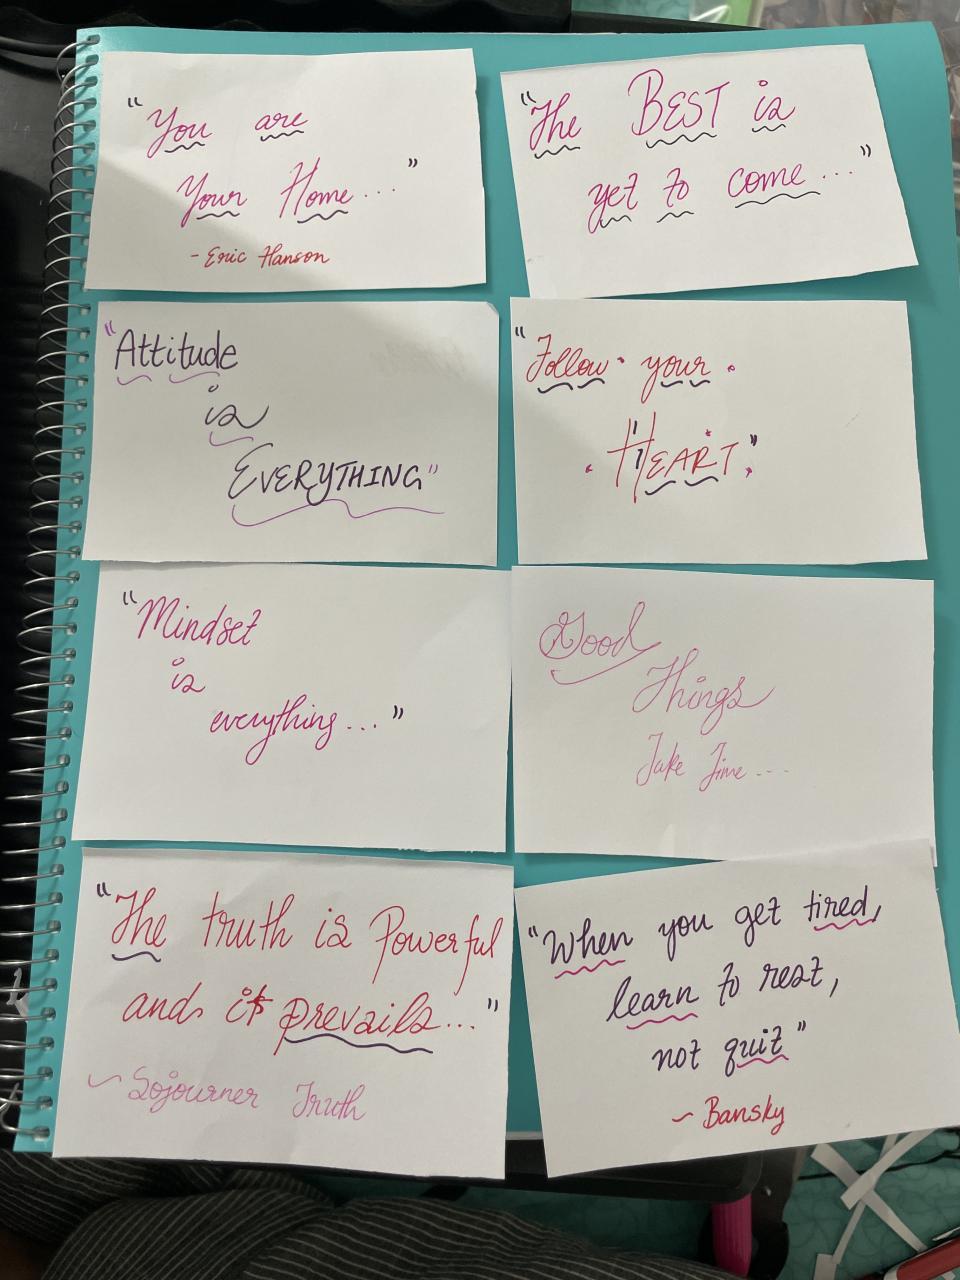 "You are
Your Home..."
- Eric Hanson
"The BEST is
yet to come..."
"Attitude
is
EVERYTHING"
"Follow your
HEART"
"Mindset
is
everything..."
Good
Things
Take Time...
"The truth is Powerful
and it prevails..."
~ Sojourner Truth
"When you get tired,
learn to rest,
not quit"
~ Bansky